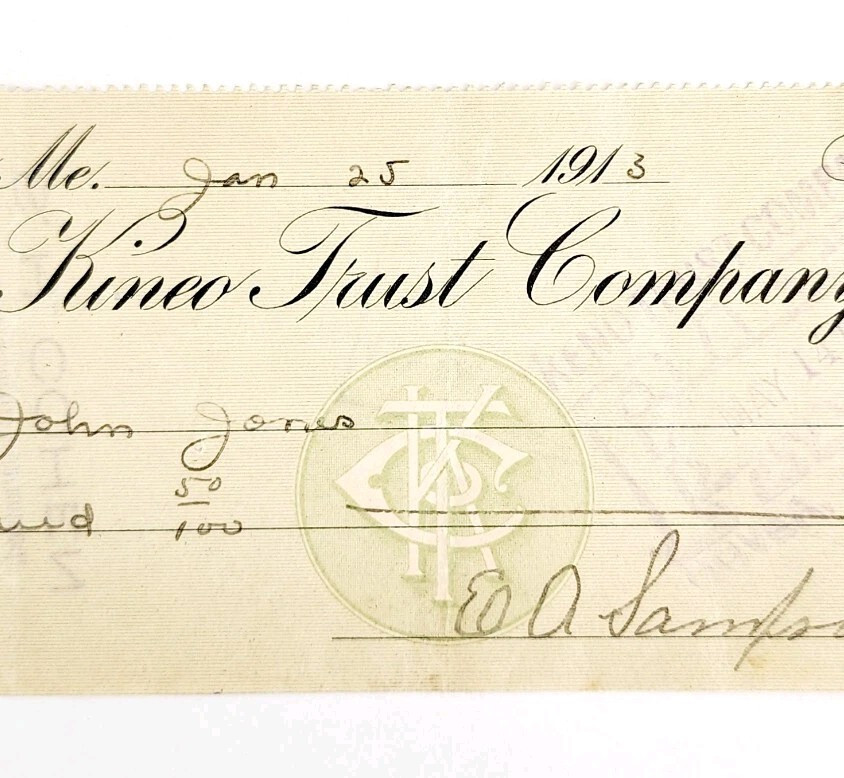 Me. Jan 25 1913
Kineo Trust Company
John Jones
50
100
E A Samps
MAY 14